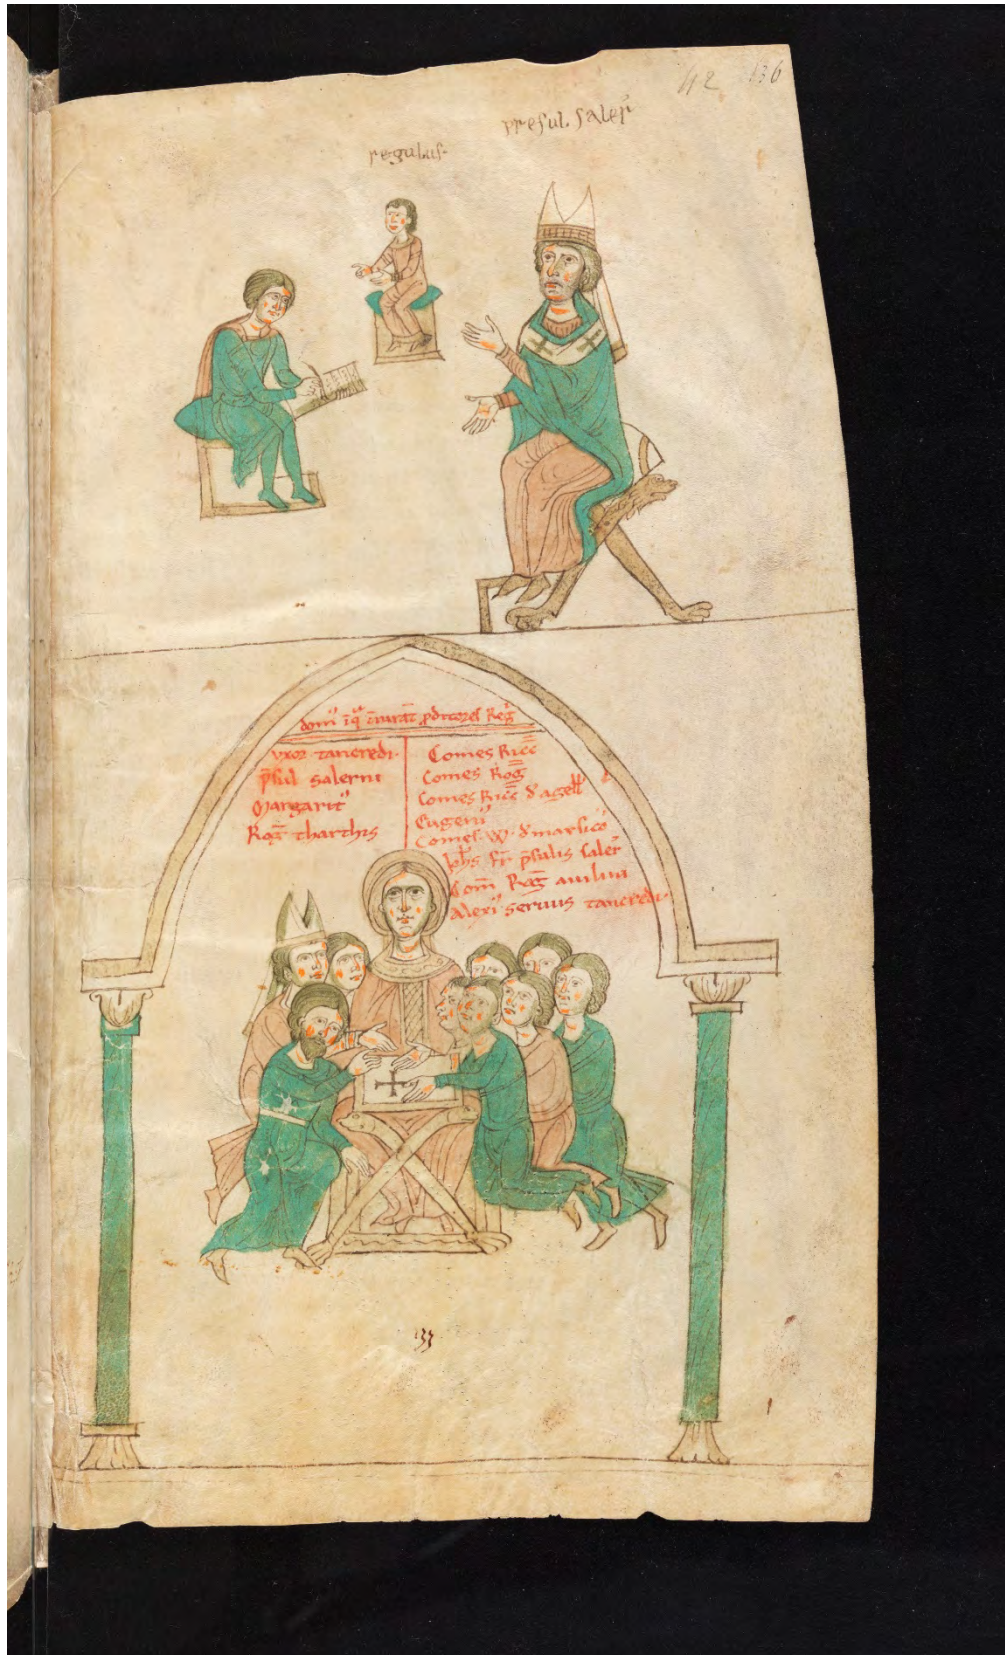 42 136
presul. saler̄
regulus.
domꝰ ī qͣ iurāt ꝓditores Reḡ
vxor tancredi.
p̄sul salerni
Margaritꝰ
Roḡ tharthis
Comes Ricc̄
Comes Roḡ
Comes Ricc̄ d' agell'
Eugeniꝰ
Comes. W. d' marsico
Ioh̄s fr̄ p̄sulis saler̄
Com̄ Roḡ auilini
Alexiꝰ seruus tancredi.
137